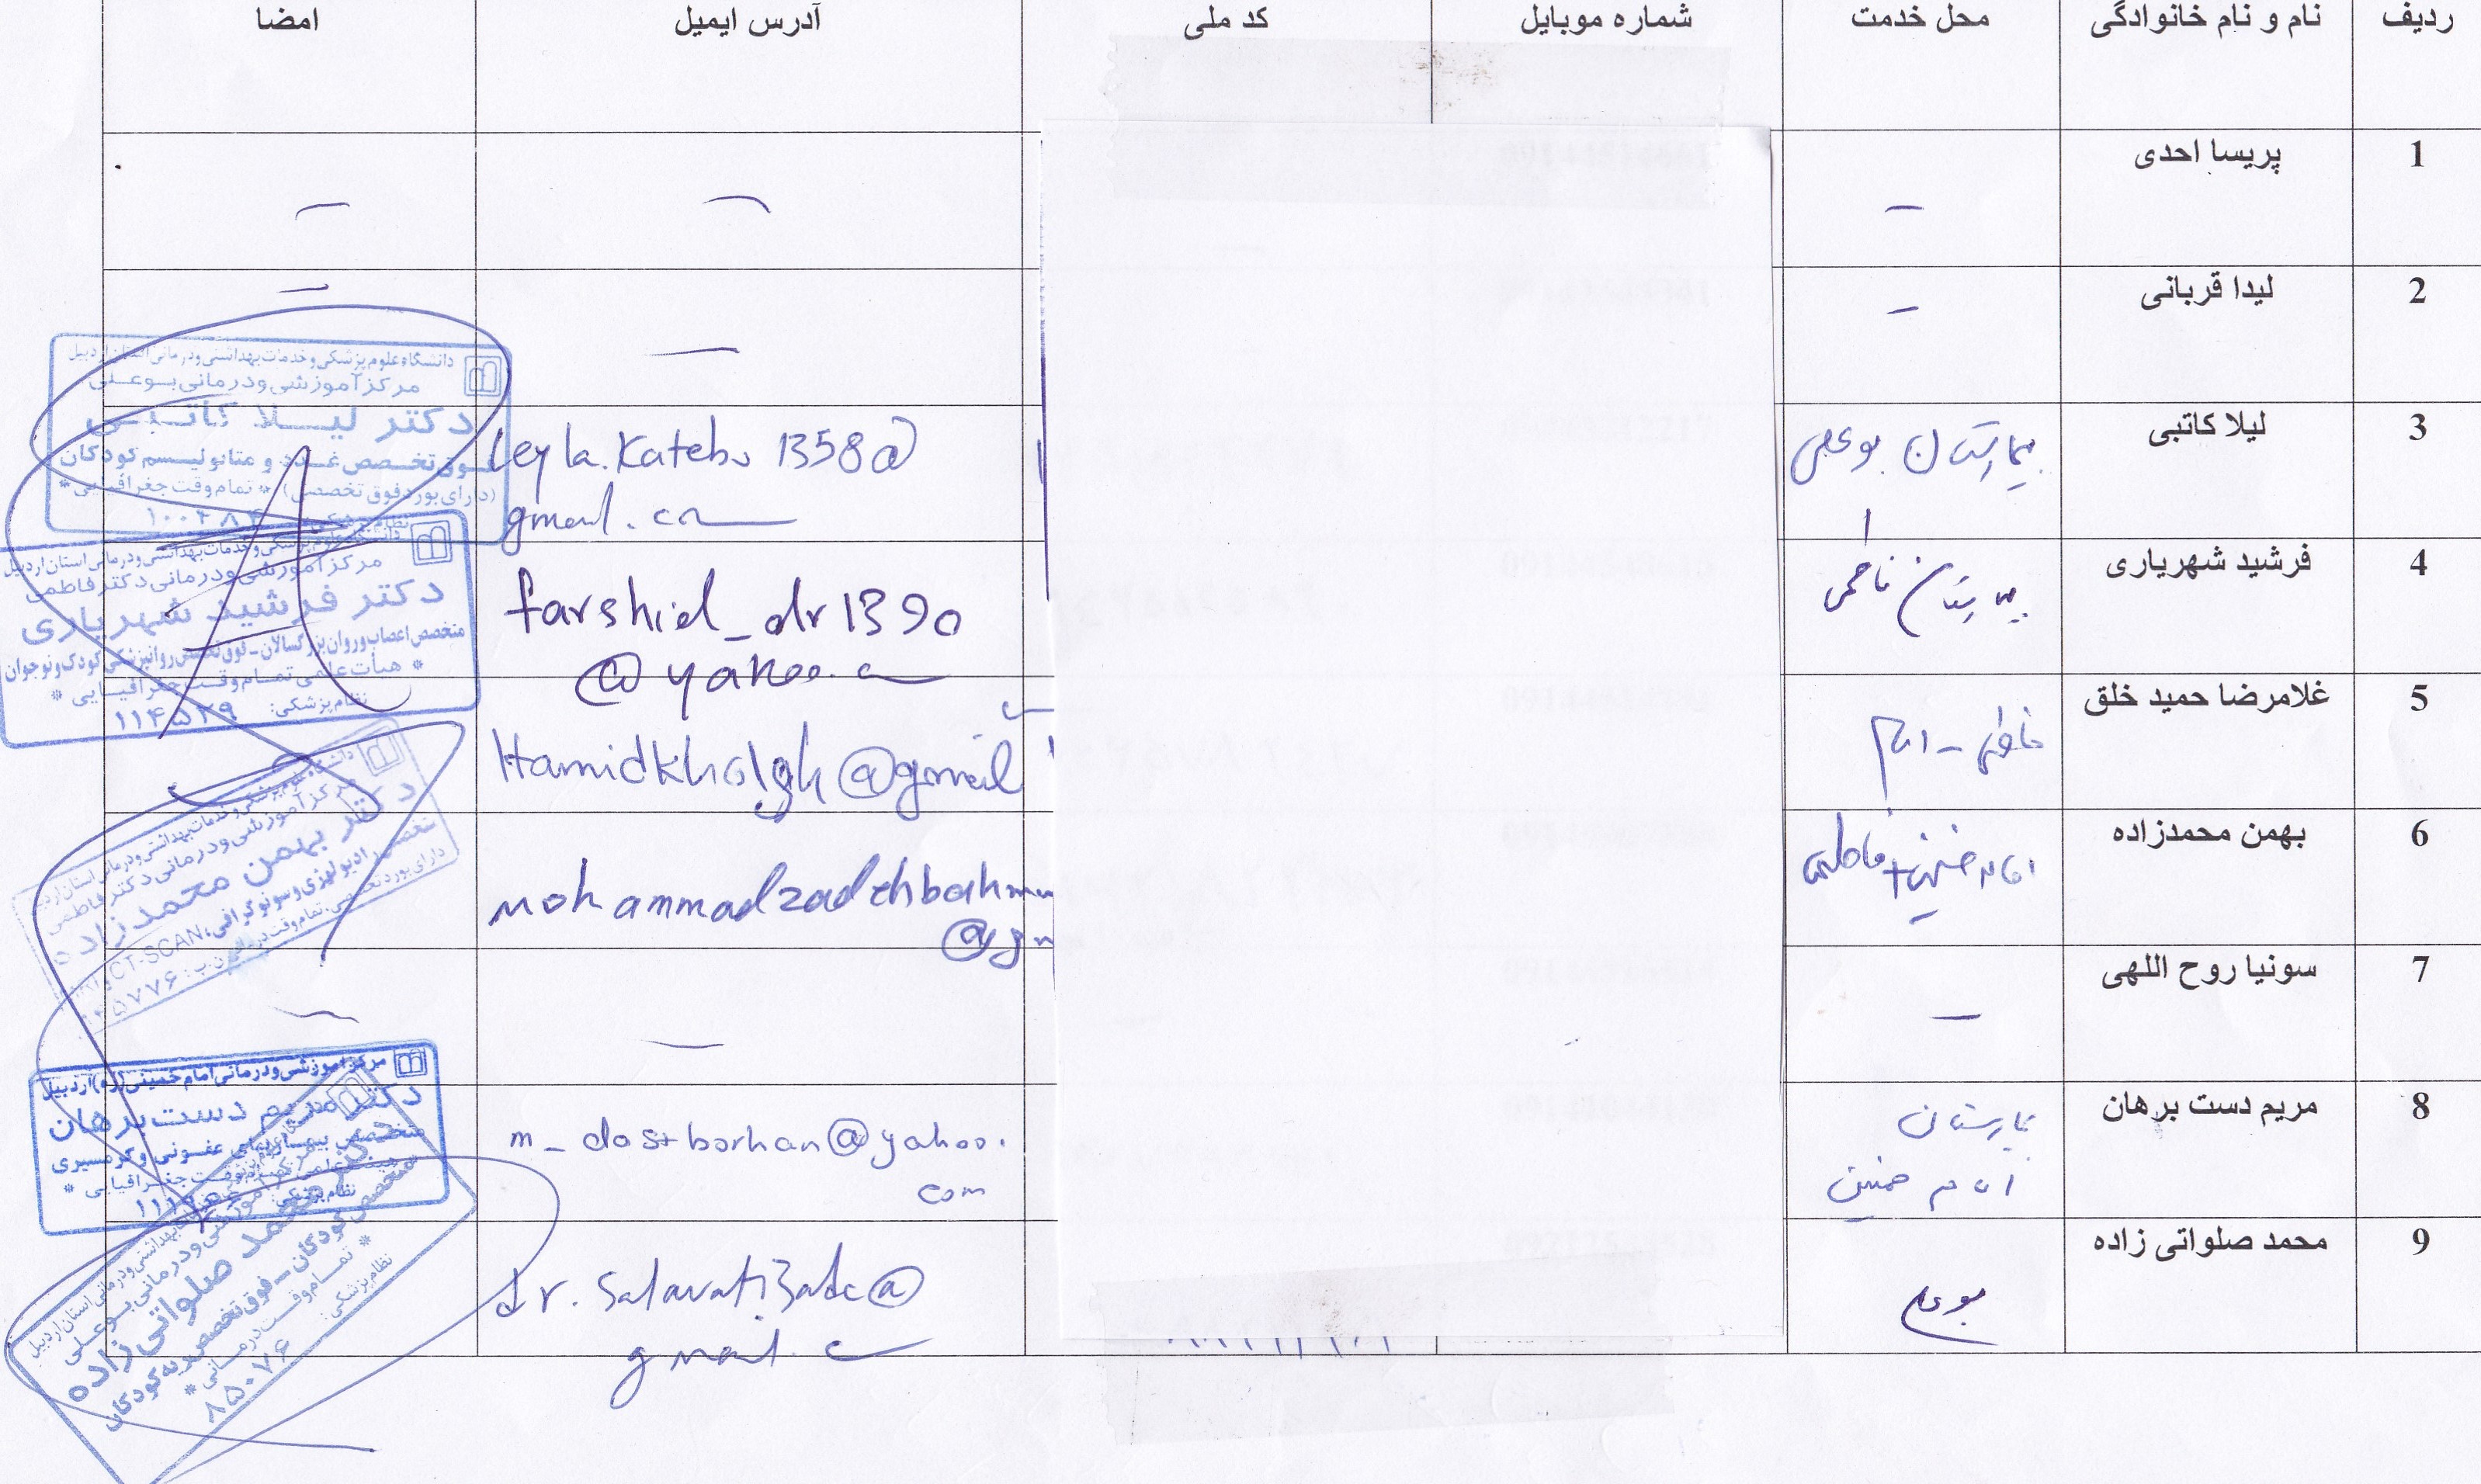 ردیف نام و نام خانوادگی محل خدمت شماره موبایل کد ملی آدرس ایمیل امضا
1 پریسا احدی – – –
2 لیدا قربانی – – –
3 لیلا کاتبی بیمارستان بوعلی
Leyla.Katebi 1358@
gmail.com
4 فرشید شهریاری بیمارستان فاطمی
farshid_dr1390
@yahoo.com
5 غلامرضا حمید خلق فاطمی – امام
Hamidkholgh@gmail
6 بهمن محمدزاده امام خمینی + فاطمی
mohammadzadehbahman
@gm
7 سونیا روح اللهی – – –
8 مریم دست برهان بیمارستان
امام خمینی
m_dastborhan@yahoo.
com
9 محمد صلواتی زاده
بوعلی
dr.Salavatizade@
gmail.
دانشگاه علوم پزشکی و خدمات بهداشتی و درمانی استان اردبیل
مرکز آموزشی و درمانی بوعلی
دکتر لیلا کاتبی
فوق تخصص غدد و متابولیسم کودکان
(دارای بورد فوق تخصصی) * تمام وقت جغرافیایی *
نظام پزشکی:
دانشگاه علوم پزشکی و خدمات بهداشتی و درمانی استان اردبیل
مرکز آموزشی و درمانی دکتر فاطمی
دکتر فرشید شهریاری
متخصص اعصاب و روان بزرگسالان - فوق تخصص روانپزشکی کودک و نوجوان
* هیأت علمی تمام وقت جغرافیایی *
نظام پزشکی: ۱۱۴۵۲۹
دانشگاه علوم پزشکی و خدمات بهداشتی و درمانی استان اردبیل
مرکز آموزشی و درمانی دکتر فاطمی
دکتر بهمن محمدزاده
متخصص رادیولوژی و سونوگرافی، CT-SCAN و
دارای بورد تخصصی، تمام وقت
مرکز آموزشی و درمانی امام خمینی (ره) اردبیل
دکتر مریم دست برهان
متخصص بیماریهای عفونی و گرمسیری
جغرافیایی *
نظام پزشکی:
مرکز آموزشی و درمانی بوعلی
دکتر محمد صلواتی زاده
متخصص کودکان - فوق تخصص ریه کودکان
* تمام وقت درمانی *
نظام پزشکی:
۸۵۰۷۶